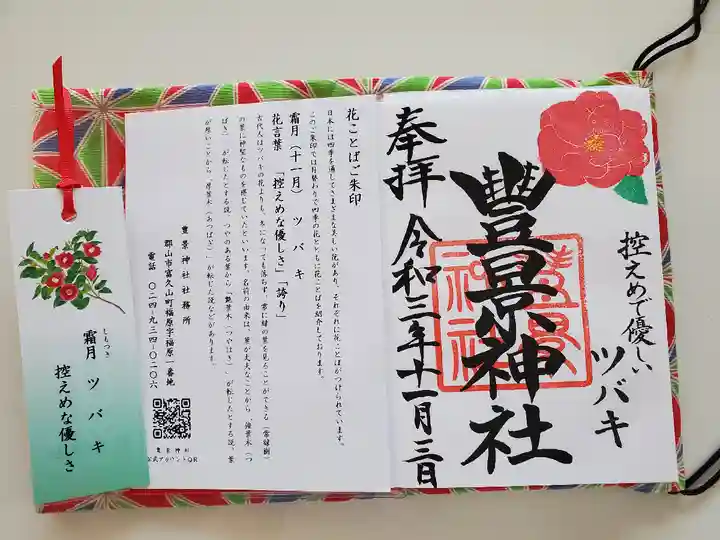 奉拝
豐景神社
令和三年十一月三日
控えめで優しい
ツバキ
花ことばご朱印
日本には四季を通してさまざまな美しい花があり、それぞれに花ことばがつけられています。
このご朱印では月替わりで四季の花とともに花ことばを紹介しております。
霜月(十一月) ツバキ
花言葉 「控えめな優しさ」「誇り」
古代人はツバキの花よりも、冬になっても落ちず 常に緑の葉を見ることができる(常緑樹)
の葉に神聖なものを感じていたといいます。名前の由来は、葉が丈夫なことから、強葉木(つ
ばき)」が転じたとする説、つやのある葉から「艶葉木(つやはき)」が転じたとする説、葉
が厚いことから、「厚葉木(あつばき)」が転じた説などがあります。
豊景神社社務所
郡山市富久山町福原字福原一番地
電話 〇二四-九三四-〇二〇六
豊景神社
公式アカウントQR
しもつき
霜月 ツバキ
控えめな優しさ